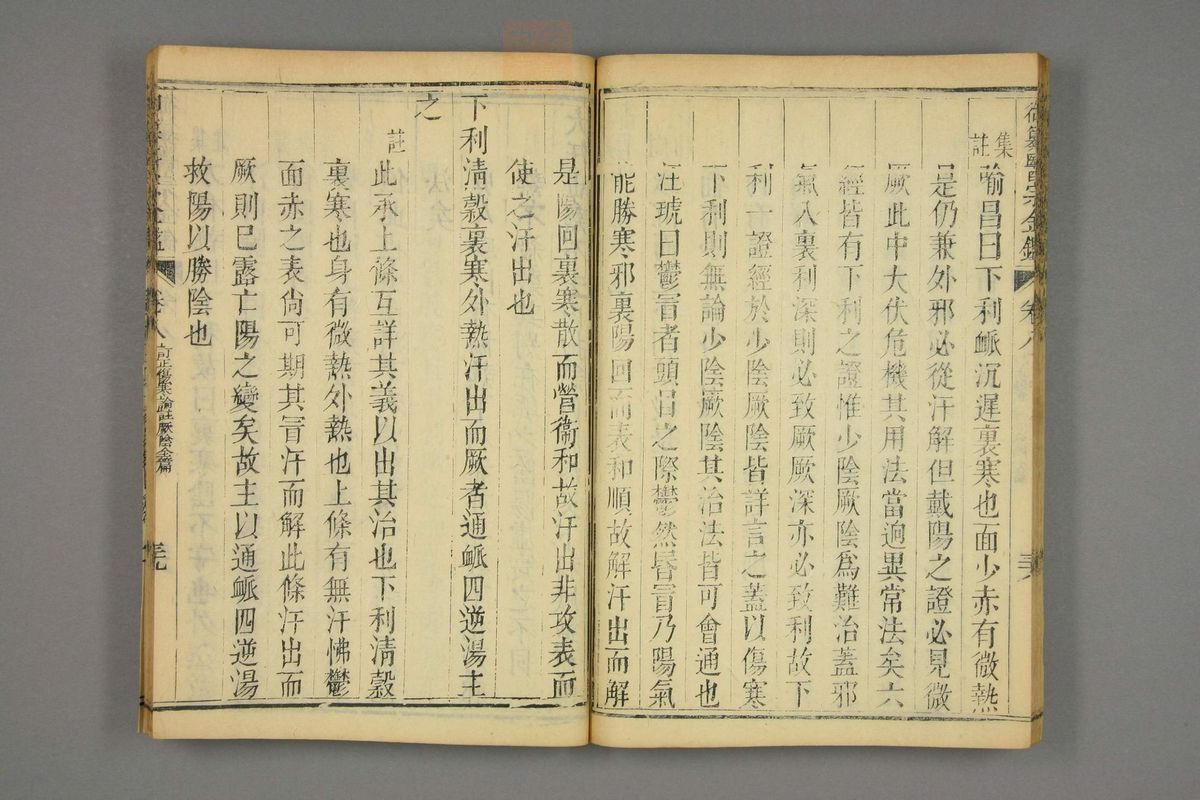 御纂醫宗金鑑 卷八 三八
集註
喻昌曰下利衇沉遲裏寒也面少赤有微熱
是仍兼外邪必從汗解但戴陽之證必見微
厥此中大伏危機其用法當迥異常法矣六
經皆有下利之證惟少陰厥陰爲難治蓋邪
氣入裏利深則必致厥厥深亦必致利故下
利一證經於少陰厥陰皆詳言之蓋以傷寒
下利則無論少陰厥陰其治法皆可會通也
汪琥曰鬱冒者頭目之際鬱然昏冒乃陽氣
能勝寒邪裏陽回而表和順故解汗出而解
是陽回裏寒散而營衞和故汗出非攻表而
使之汗出也
下利淸穀裏寒外熱汗出而厥者通衇四逆湯主
之
註
此承上條互詳其義以出其治也下利淸穀
裏寒也身有微熱外熱也上條有無汗怫鬱
面赤之表尙可期其冒汗而解此條汗出而
厥則已露亡陽之變矣故主以通衇四逆湯
救陽以勝陰也
卷八 訂正傷寒論註厥陰全篇 三九